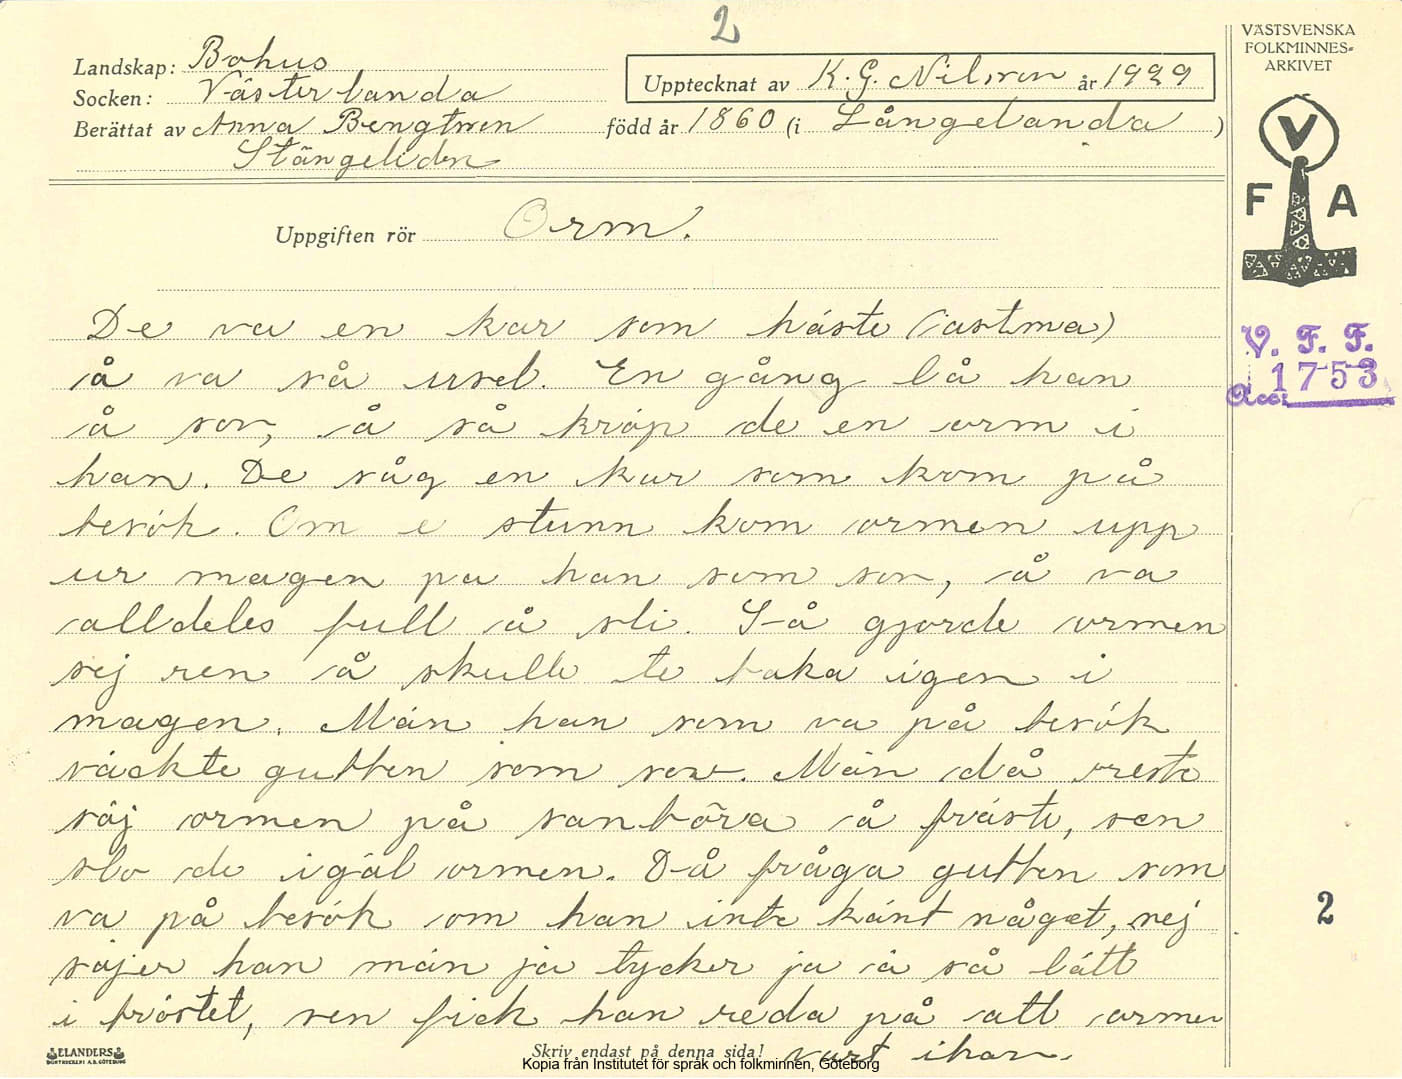 2
VÄSTSVENSKA
FOLKMINNES=
ARKIVET
Landskap: Bohus
Socken: Västerlanda
Upptecknat av K. G. Nilsson år 1929
Berättat av Anna Bengtson född år 1860 (i Långelanda)
Stängeliden
V
F A
Uppgiften rör Orm.
V. F. F.
Acc: 1753
De va en kar som häste (astma)
å va så usel. En gång lå han
å sov, å så kröp de en orm i
han. De såg en kar som kom på
besök. Om e stunn kom ormen upp
ur magen på han som sov, å va
alldeles full å sli. Så gjorde ormen
sej ren å skulle te baka igen i
magen. Män han som va på besök
väckte gubben som sov. Män då reste
säj ormen på sanböra å fräste, sen
slo de igäl ormen. Då fråga gubben som
va på besök om han inte känt något, nej
säjer han män ja tycker ja ä så lätt
i bröstet, sen fick han reda på att ormen
vart i han.
2
ELANDERS
BOKTRYCKERI A.B. GÖTEBORG
Skriv endast på denna sida!
Kopia från Institutet för språk och folkminnen, Göteborg